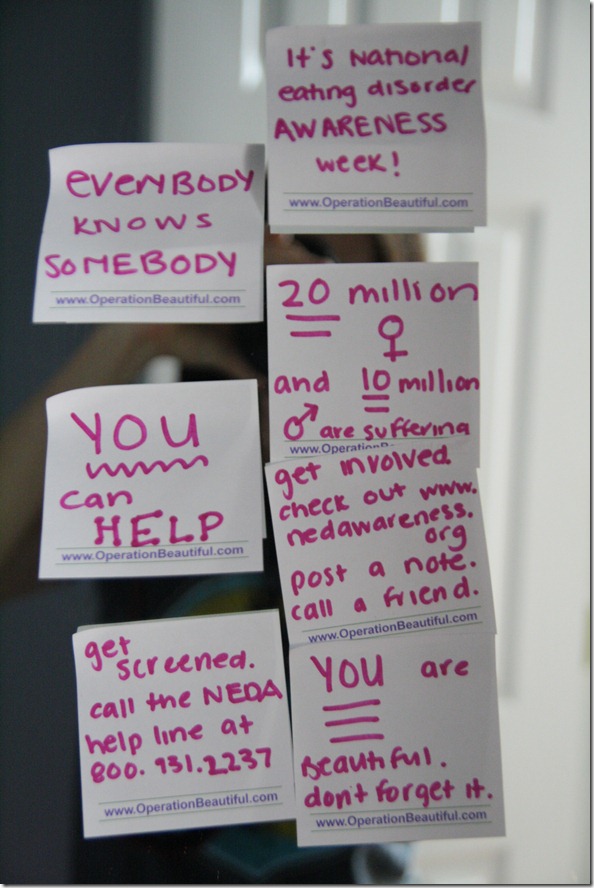 It's National
eating disorder
AWARENESS
week!
www.OperationBeautiful.com
EVERYBODY
KNOWS
SOMEBODY
www.OperationBeautiful.com
20 million
♀
and 10 million
♂ are suffering
www.OperationBeautiful.com
YOU
can
HELP
www.OperationBeautiful.com
get involved.
check out www.
nedawareness.
org
post a note.
call a friend.
www.OperationBeautiful.com
get
screened.
call the NEDA
help line at
800.931.2237
www.OperationBeautiful.com
YOU are
Beautiful.
don't forget it.
www.OperationBeautiful.com